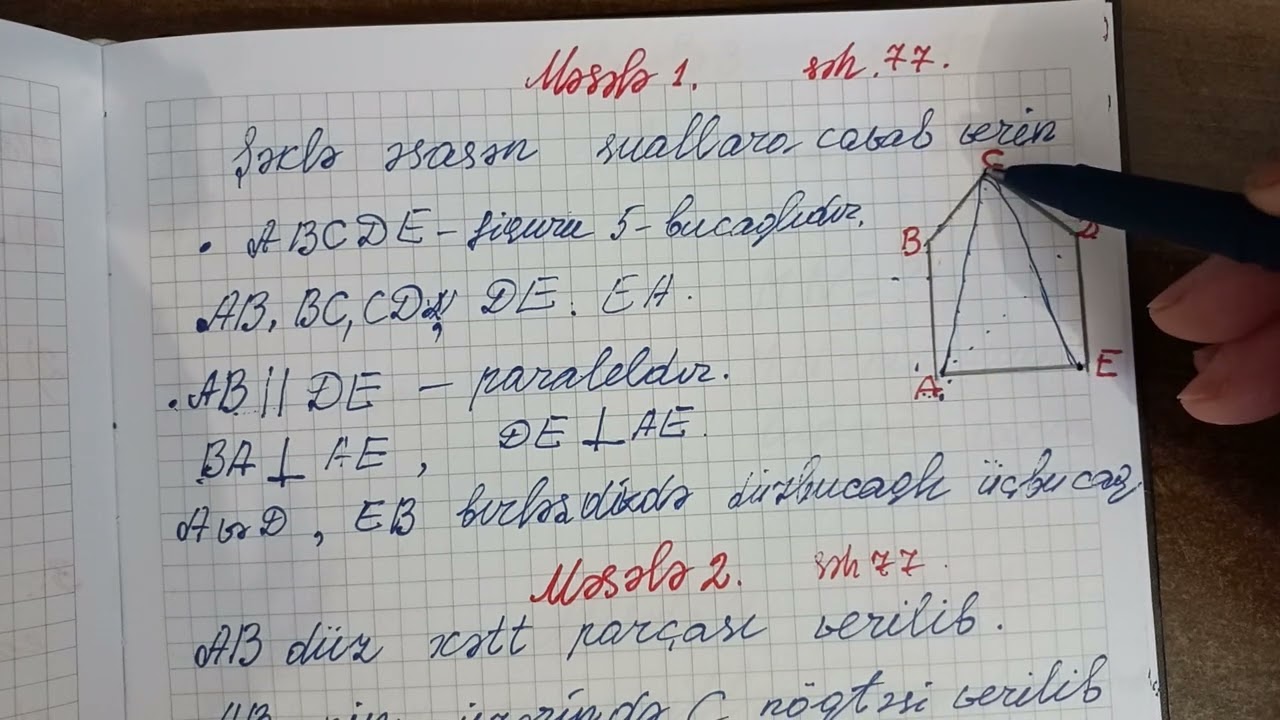 Məsələ 1. səh. 77.
Şəklə əsasən suallara cavab verin
• ABCDE – fiquru 5-bucaqlıdır.
• AB, BC, CD, DE. EA.
• AB || DE – paraleldir.
BA ⊥ AE, DE ⊥ AE.
A və D, EB birləşdikdə düzbucaqlı üçbucaq
C
B
A
E
Məsələ 2. səh 77.
AB düz xətt parçası verilib.
üzərində C nöqtəsi verilib